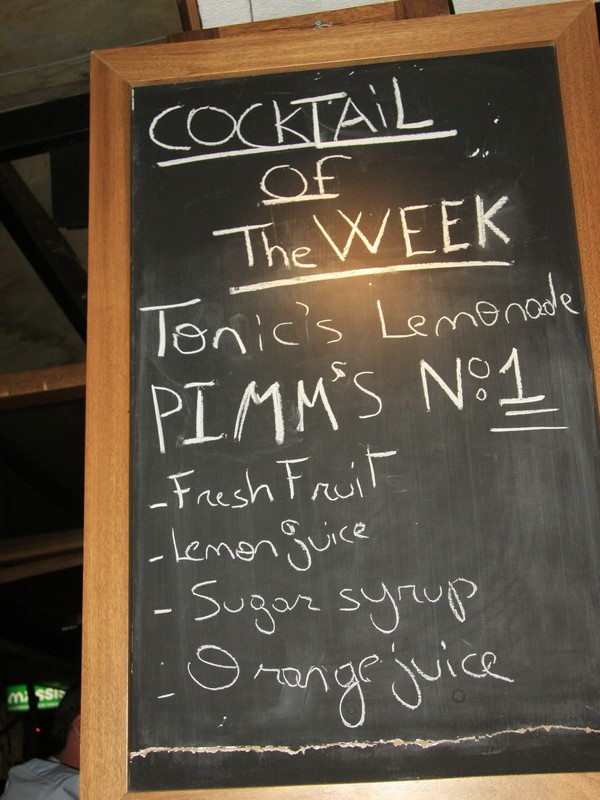 COCKTAiL
OF
The WEEK
Tonic's Lemonade
PIMM's N° 1
- Fresh Fruit
- Lemon juice
- Sugar syrup
- Orange juice